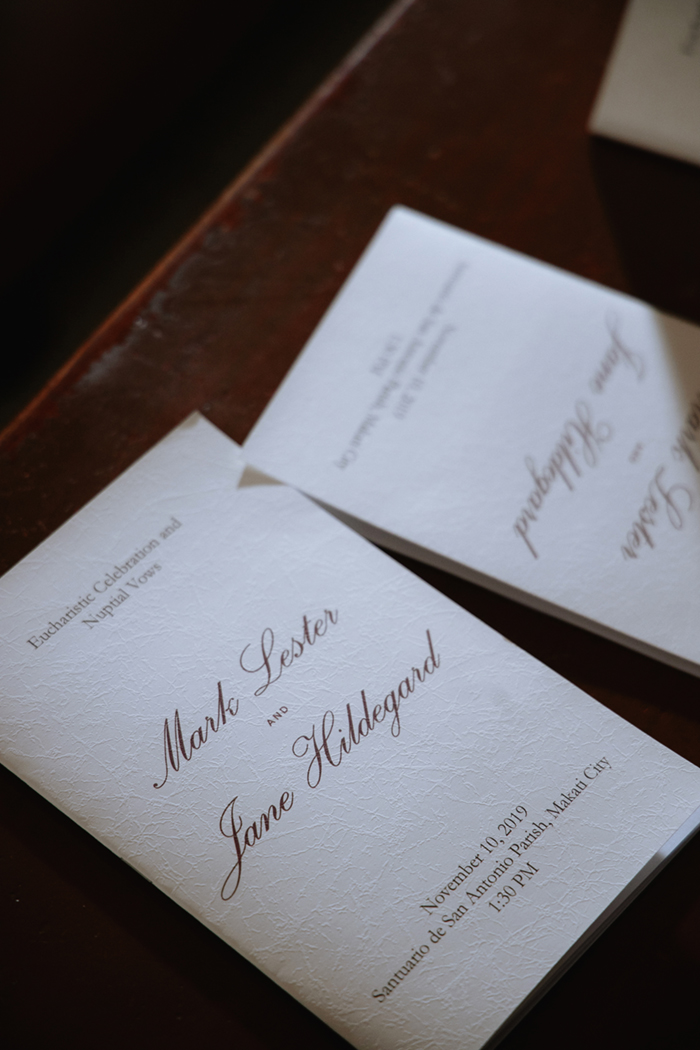 Eucharistic Celebration and
Nuptial Vows
Mark Lester
AND
Jane Hildegard
November 10, 2019
Santuario de San Antonio Parish, Makati City
1:30 PM
Lester
AND
Jane Hildegard
November 10, 2019
Santuario de San Antonio Parish, Makati City
1:30 PM